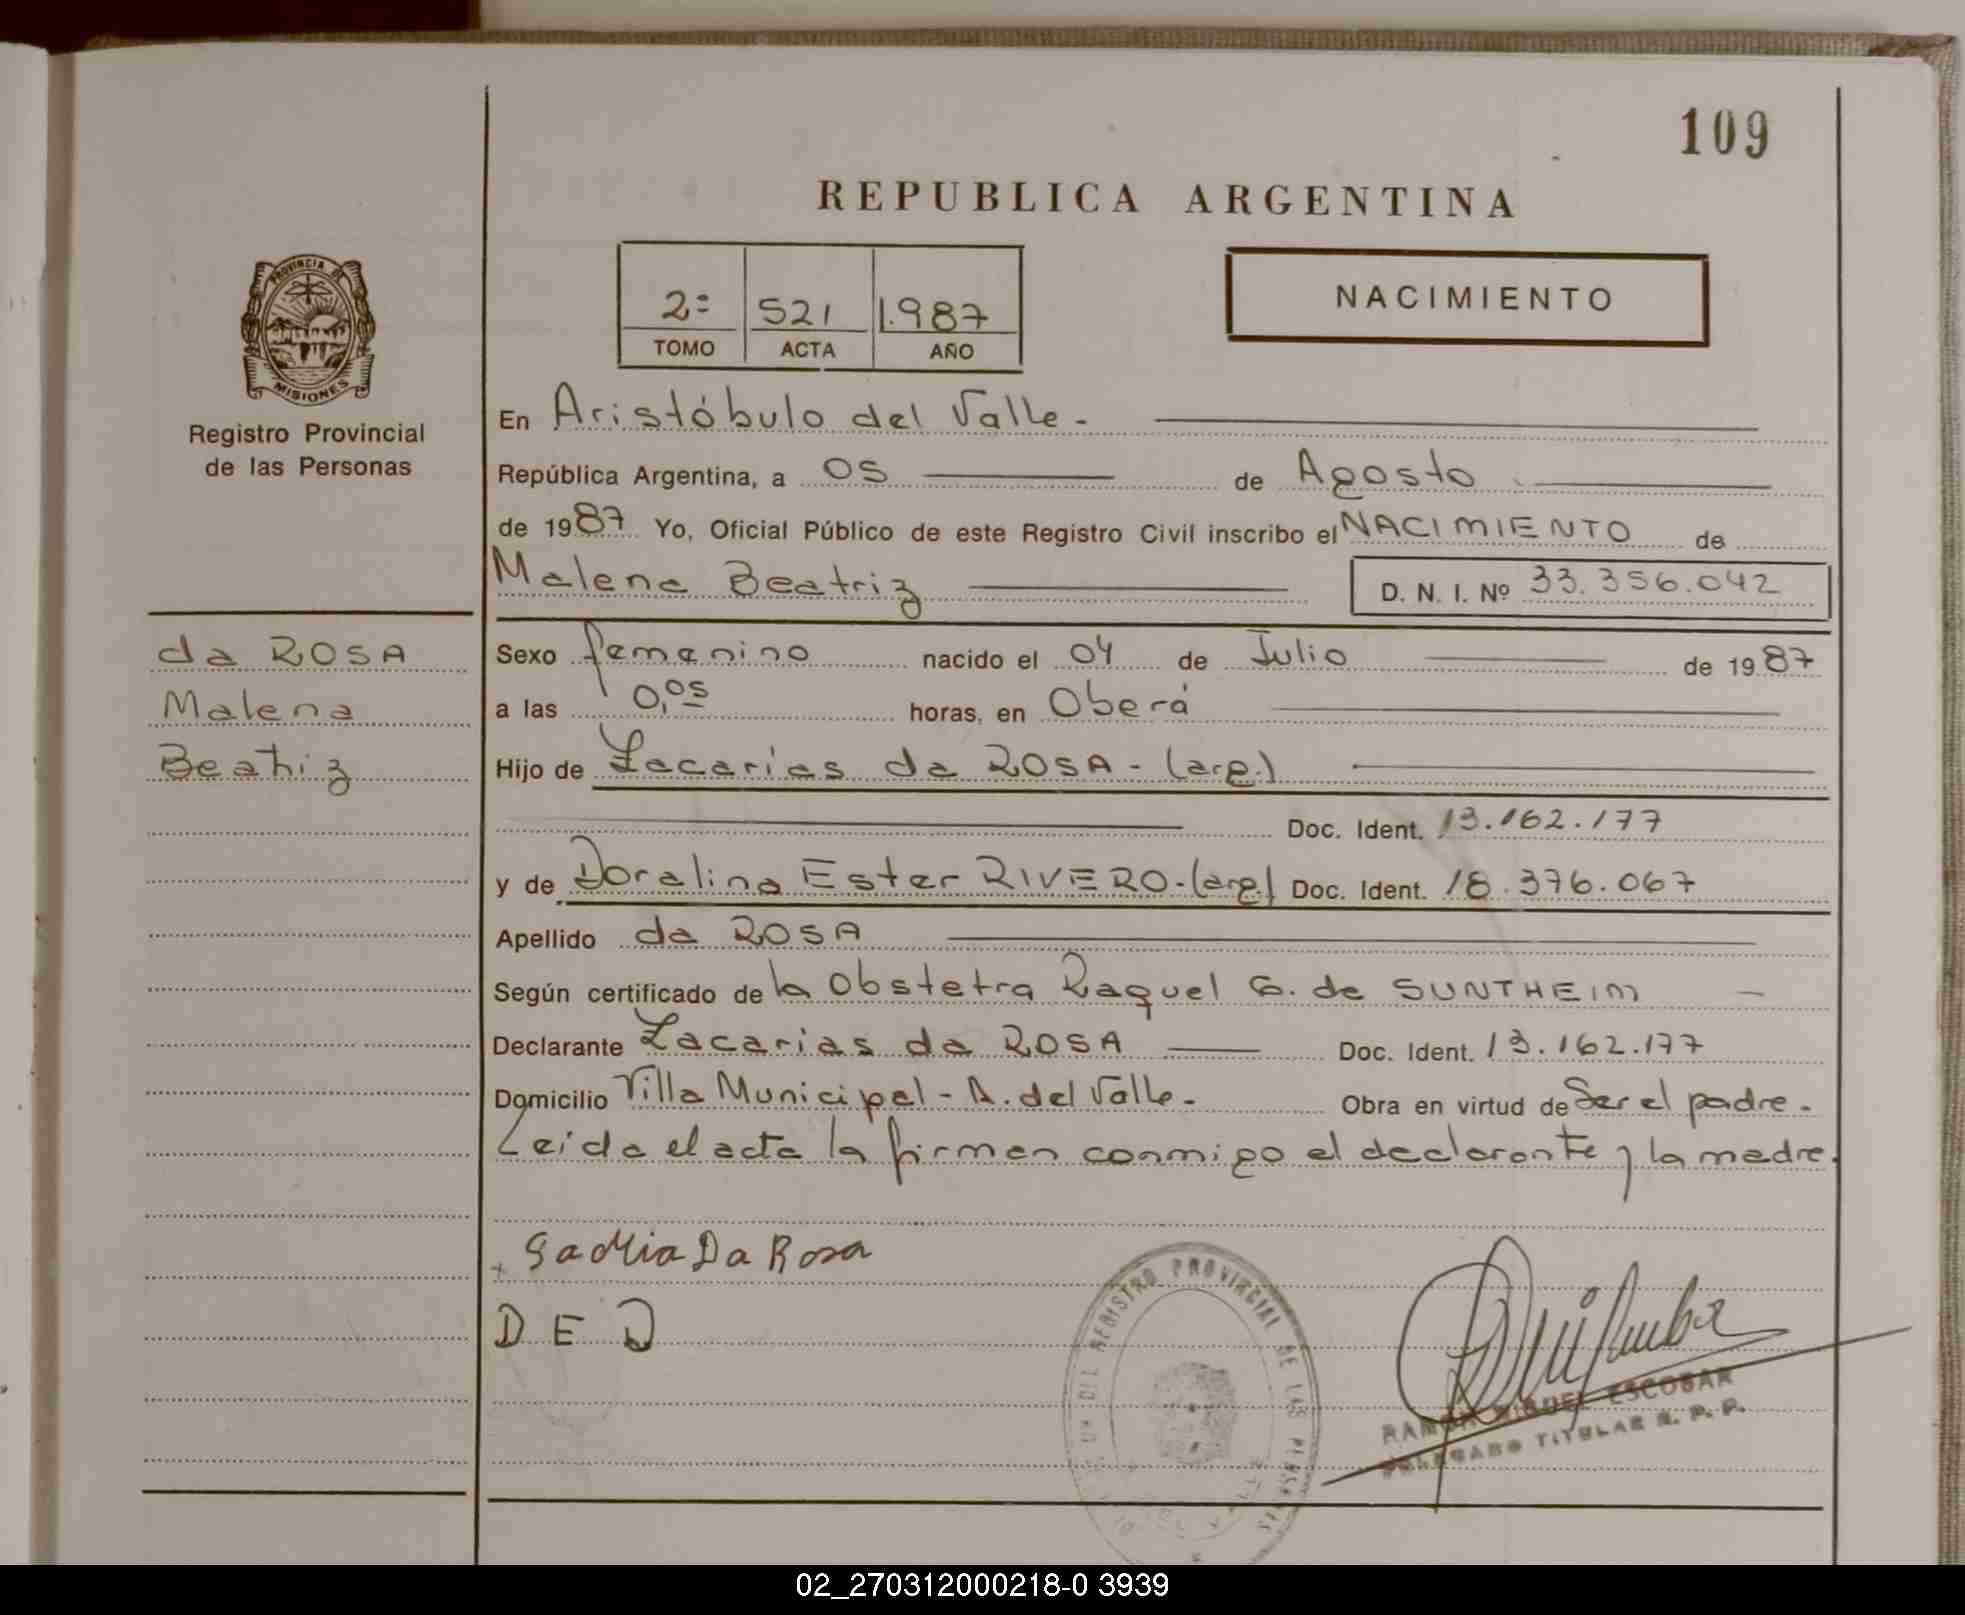 109
REPUBLICA ARGENTINA
2º 521 1.987
TOMO ACTA AÑO
NACIMIENTO
PROVINCIA DE
MISIONES
Registro Provincial
de las Personas
En Aristóbulo del Valle.-
República Argentina, a 05 de Agosto
de 1987 Yo, Oficial Público de este Registro Civil inscribo el NACIMIENTO de
Malena Beatriz D. N. I. Nº 33.356.042
da ROSA
Malena
Beatriz
Sexo femenino nacido el 04 de Julio de 1987
a las 0,05 horas, en Oberá
Hijo de Zacarías da ROSA - (arg.)
Doc. Ident. 13.162.177
y de Doralina Ester RIVERO - (arg.) Doc. Ident. 18.376.067
Apellido da ROSA
Según certificado de la Obstetra Raquel G. de SUNTHEIM -
Declarante Zacarias da ROSA Doc. Ident. 13.162.177
Domicilio Villa Municipal - A. del Valle.- Obra en virtud de Ser el padre.
Leida el acta la firman conmigo el declarante y la madre.
Da Rosa
D E
REGISTRO PROVINCIAL DE LAS PERSONAS
RAMON MIGUEL ESCOBAR
DELEGADO TITULAR R. P. P.
02_270312000218-0 3939